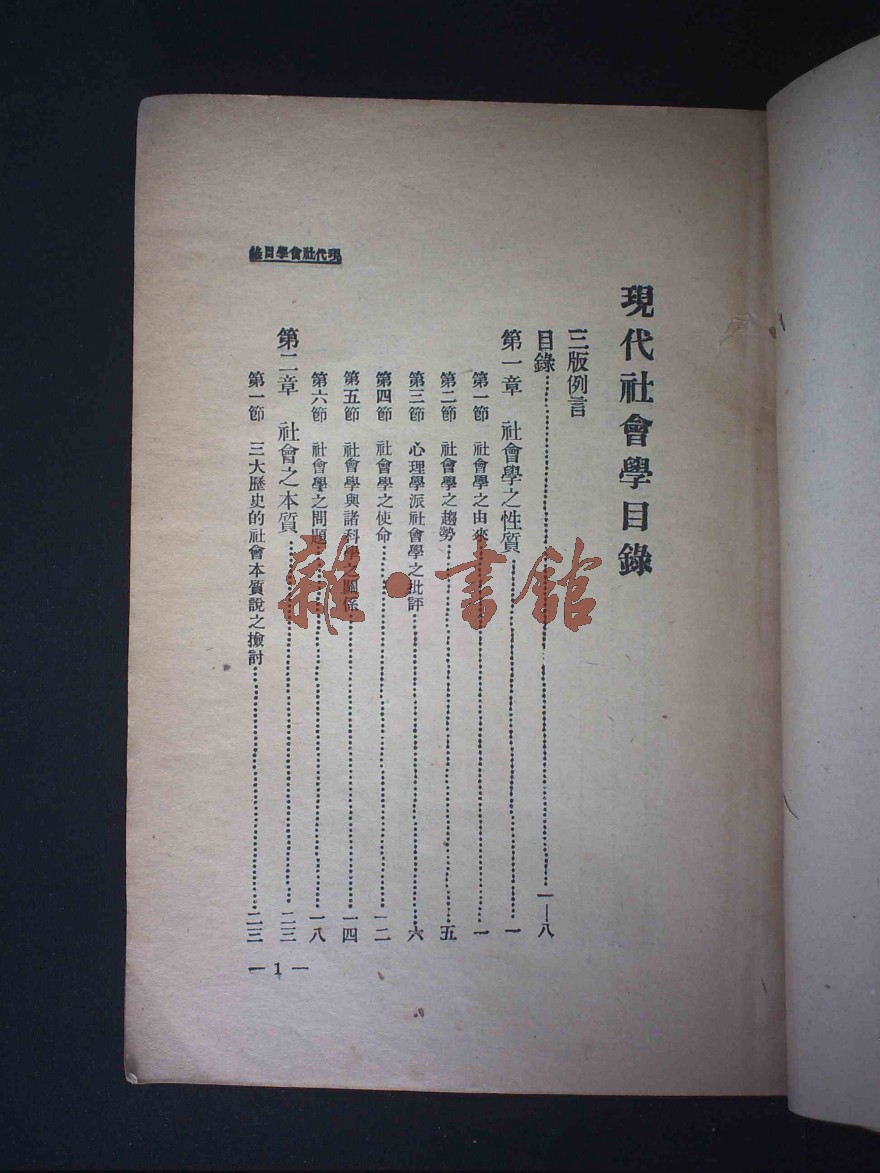 現代社會學目錄
現代社會學目錄
三版例言
目錄……一—八
第一章 社會學之性質……一
第一節 社會學之由來……一
第二節 社會學之趨勢……五
第三節 心理學派社會學之批評……六
第四節 社會學之使命……一二
第五節 社會學與諸科學之關係……一四
第六節 社會學之問題……一八
第二章 社會之本質……二三
第一節 三大歷史的社會本質說之撿討……二三
— 1 —
雜·書館